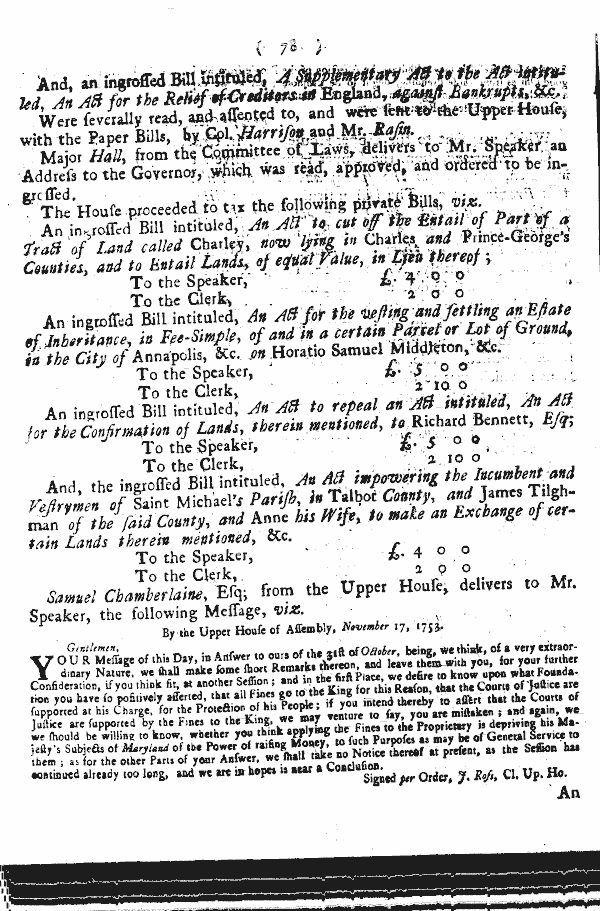 ( 78 )
And, an ingroſſed Bill intituled, A Supplementary Act to the Act intitu-
led, An Act for the Relief of Creditors in England, againſt Bankrupts, &c.
Were ſeverally read, and aſſented to, and were ſent to the Upper Houſe,
with the Paper Bills, by Col. Harriſon and Mr. Raſin.
Major Hall, from the Committee of Laws, delivers to Mr. Speaker an
Addreſs to the Governor, which was read, approved, and ordered to be in-
groſſed.
The Houſe proceeded to tax the following private Bills, viz.
An ingroſſed Bill intituled, An Act to cut off the Entail of Part of a
Tract of Land called Charley, now lying in Charles and Prince-George's
Counties, and to Entail Lands, of equal Value, in Lieu thereof;
To the Speaker, £. 4 0 0
To the Clerk, 2 0 0
An ingroſſed Bill intituled, An Act for the veſting and ſettling an Eſtate
of Inheritance, in Fee-Simple, of and in a certain Parcel or Lot of Ground,
in the City of Annapolis, &c. on Horatio Samuel Middleton, &c.
To the Speaker, £. 5 0 0
To the Clerk, 2 10 0
An ingroſſed Bill intituled, An Act to repeal an Act intituled, An Act
for the Confirmation of Lands, therein mentioned, to Richard Bennett, Eſq;
To the Speaker, £. 5 0 0
To the Clerk, 2 10 0
And, the ingroſſed Bill intituled, An Act impowering the Incumbent and
Veſtrymen of Saint Michael's Pariſh, in Talbot County, and James Tilgh-
man of the ſaid County, and Anne his Wife, to make an Exchange of cer-
tain Lands therein mentioned, &c.
To the Speaker, £. 4 0 0
To the Clerk, 2 0 0
Samuel Chamberlaine, Eſq; from the Upper Houſe, delivers to Mr.
Speaker, the following Meſſage, viz.
By the Upper Houſe of Aſſembly, November 17, 1753.
Gentlemen,
YOUR Meſſage of this Day, in Anſwer to ours of the 31ſt of October, being, we think, of a very extraor-
dinary Nature, we ſhall make ſome ſhort Remarks thereon, and leave them with you, for your further
Conſideration, if you think fit, at another Seſſion; and in the firſt Place, we deſire to know upon what Founda-
tion you have ſo poſitively aſſerted, that all Fines go to the King for this Reaſon, that the Courts of Juſtice are
ſupported at his Charge, for the Protection of his People; if you intend thereby to aſſert that the Courts of
Juſtice are ſupported by the Fines to the King, we may venture to ſay, you are miſtaken; and again, we
we ſhould be willing to know, whether you think applying the Fines to the Proprietary is depriving his Ma-
jeſty's Subjects of Maryland of the Power of raiſing Money, to ſuch Purpoſes as may be of General Service to
them; as for the other Parts of your Anſwer, we ſhall take no Notice thereof at preſent, as the Seſſion has
continued already too long, and we are in hopes is near a Concluſion.
Signed per Order, J. Roſs, Cl. Up. Ho.
An